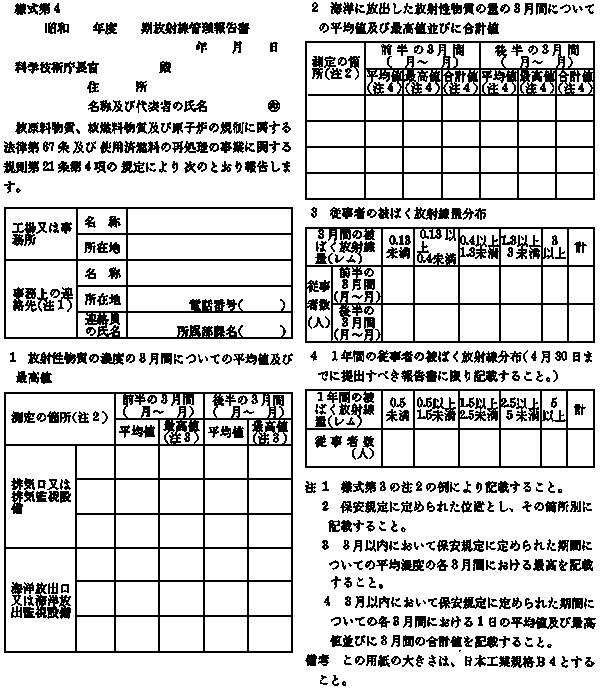 様式第4
昭和　年度　期放射線管理報告書
年　月　日
科学技術庁長官　殿
住所
名称及び代表者の氏名　㊞
核原料物質、核燃料物質及び原子炉の規制に関する
法律第67条及び使用済燃料の再処理の事業に関する
規則第21条第4項の規定により次のとおり報告しま
す。
工場又は事務所
名称
所在地
事務上の連絡先(注1)
名称
所在地
電話番号(　)
連絡員の氏名
所属部課名(　)
1　放射性物質の濃度の3月間についての平均値及び
最高値
測定の箇所(注2)
前半の3月間
(　月〜　月)
後半の3月間
(　月〜　月)
平均値
最高値(注3)
平均値
最高値(注3)
排気口又は排気監視設備
海洋放出口又は海洋放出監視設備
2　海洋に放出した放射性物質の量の3月間について
の平均値及び最高値並びに合計値
測定の箇所(注2)
前半の3月間
(　月〜　月)
後半の3月間
(　月〜　月)
平均値(注4)
最高値(注4)
合計値(注4)
平均値(注4)
最高値(注4)
合計値(注4)
3　従事者の被ばく放射線量分布
3月間の被ばく放射線量(レム)
0.13未満
0.13以上0.4未満
0.4以上1.3未満
1.3以上3未満
3以上
計
従事者数(人)
前半の3月間(月〜月)
後半の3月間(月〜月)
4　1年間の従事者の被ばく放射線分布(4月30日ま
でに提出すべき報告書に限り記載すること。)
1年間の被ばく放射線量(レム)
0.5未満
0.5以上1.5未満
1.5以上2.5未満
2.5以上5未満
5以上
計
従事者数(人)
注　1　様式第3の注2の例により記載すること。
2　保安規定に定められた位置とし、その箇所別に
記載すること。
3　3月以内において保安規定に定められた期間に
ついての平均濃度の各3月間における最高を記載
すること。
4　3月以内において保安規定に定められた期間に
ついての各3月間における1日の平均値及び最高
値並びに3月間の合計値を記載すること。
備考　この用紙の大きさは、日本工業規格B4とする
こと。